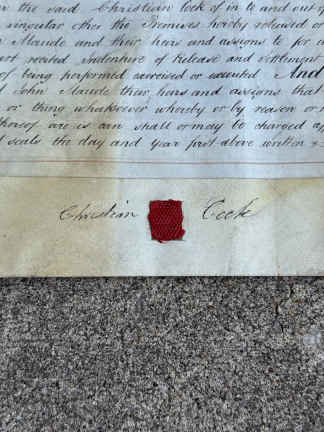 the said Christian Cock of in to and out of
singular other the Premises hereby released or
Maude and their heirs and assigns to for a
recited Indenture of Release and settlement
of being performed exercised or executed. And
John Maude their heirs and assigns that
or thing whatsoever whereby or by reason or
thereof are is can shall or may be charged
seals the day and year first above written
Christian Cock